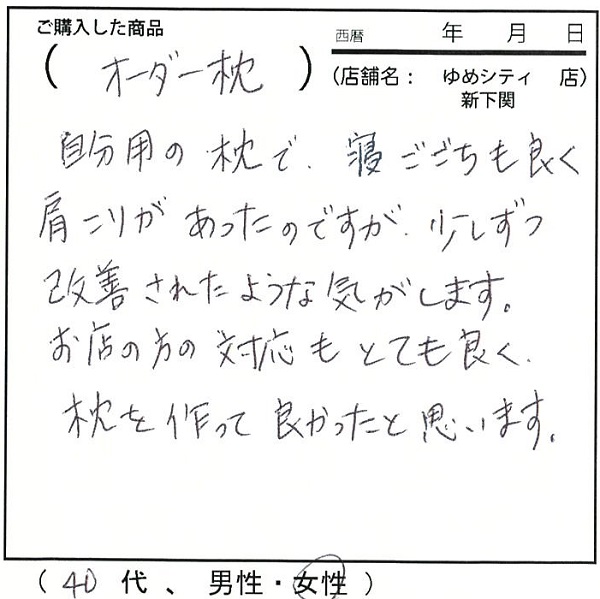 ご購入した商品
西暦 年 月 日
(オーダー枕)
(店舗名： ゆめシティ 店)
新下関
自分用の枕で、寝ごごちも良く
肩こりがあったのですが、少しずつ
改善されたような気がします。
お店の方の対応もとても良く、
枕を作って良かったと思います。
(40代、男性・女性)